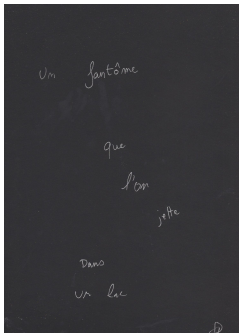 Un fantôme
que
l'on
jette
Dans
un lac